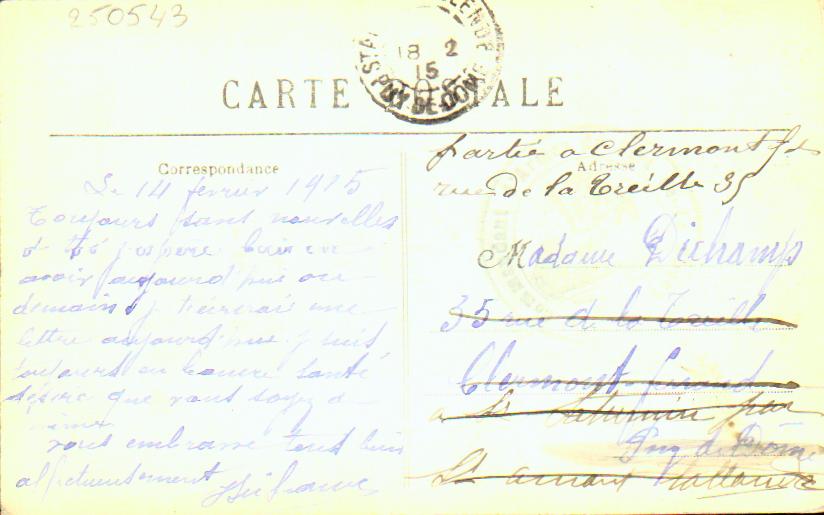 250543
18 2
15
PUY-DE-DOME
CARTE POSTALE
partie a Clermont fd
Correspondance
Adresse
rue de la Treille 35
Le 14 fevrier 1915
Toujours sant nouvelles
Madame Dichamp
avoir aujourd hui ou
35 rue de la Treille
demain j ecrirai une
lettre aujourd'hui j suis
Clermont-ferrand
toujours en bonne santé
désire que vous soyez de
a St Saturnin par
même
Puy de Dôme
vous embrasse tous bien
St amant Tallende
affectueusement